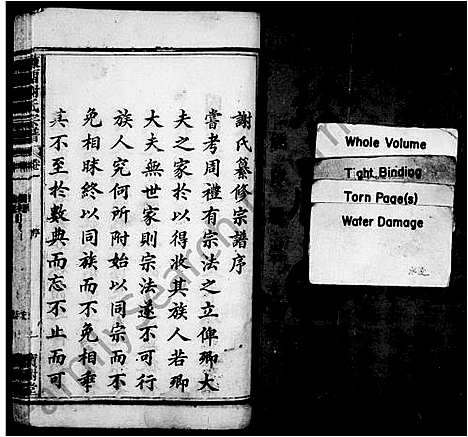 謝氏纂修宗譜序
嘗考周禮有宗法之立俾卿大
夫之家於以得收其族人若卿
大夫無世家則宗法遂不可行
族人究何所附始以同宗而不
免相眛終以同族而不免相乖
真不至於數典而忘不止而可
謝氏宗譜
卷一
序
Whole Volume
Tight Binding
Torn Page(s)
Water Damage